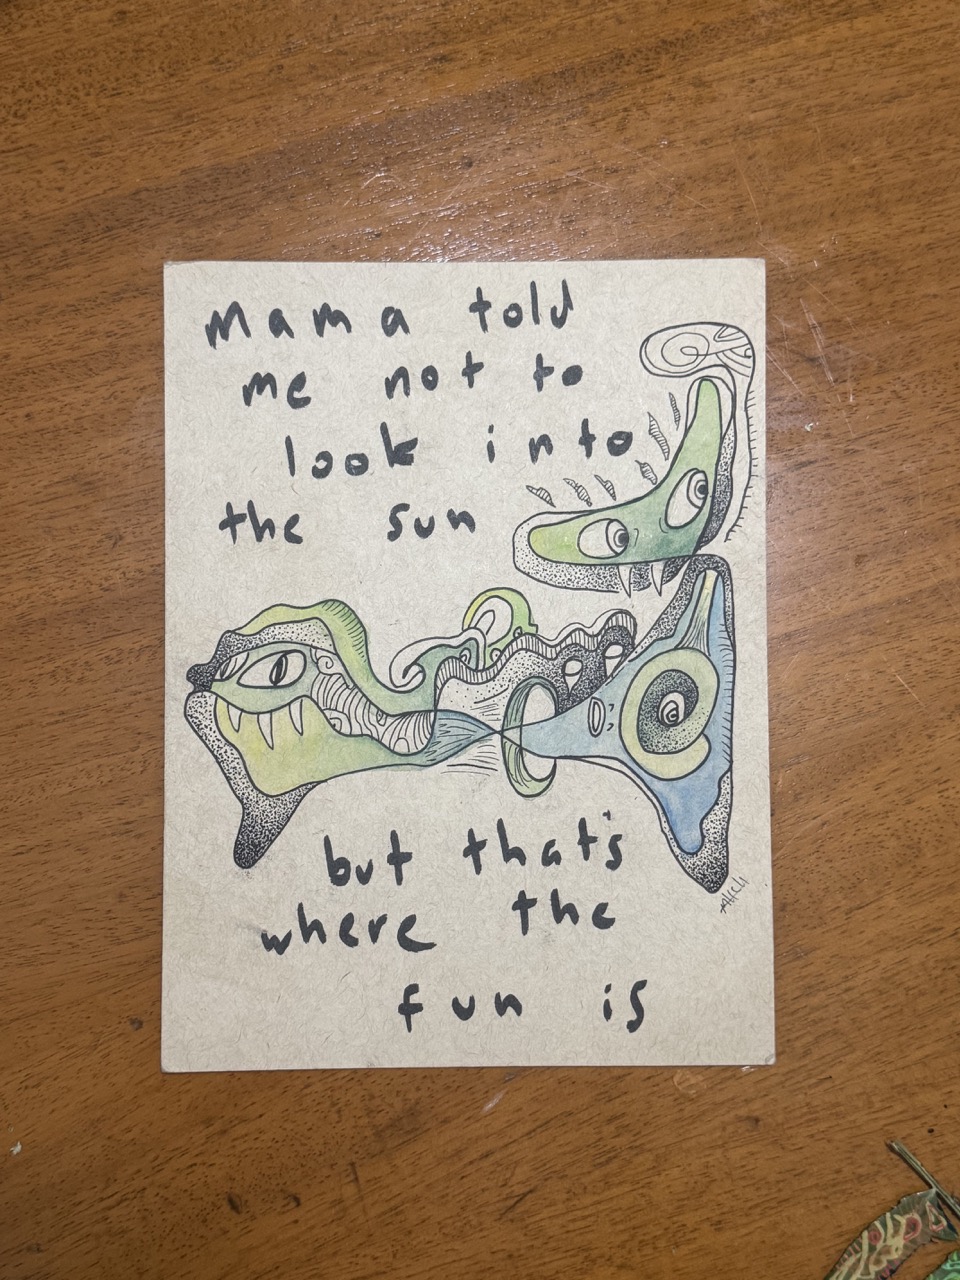 mama told
me not to
look into
the sun
but that's
where the
fun is